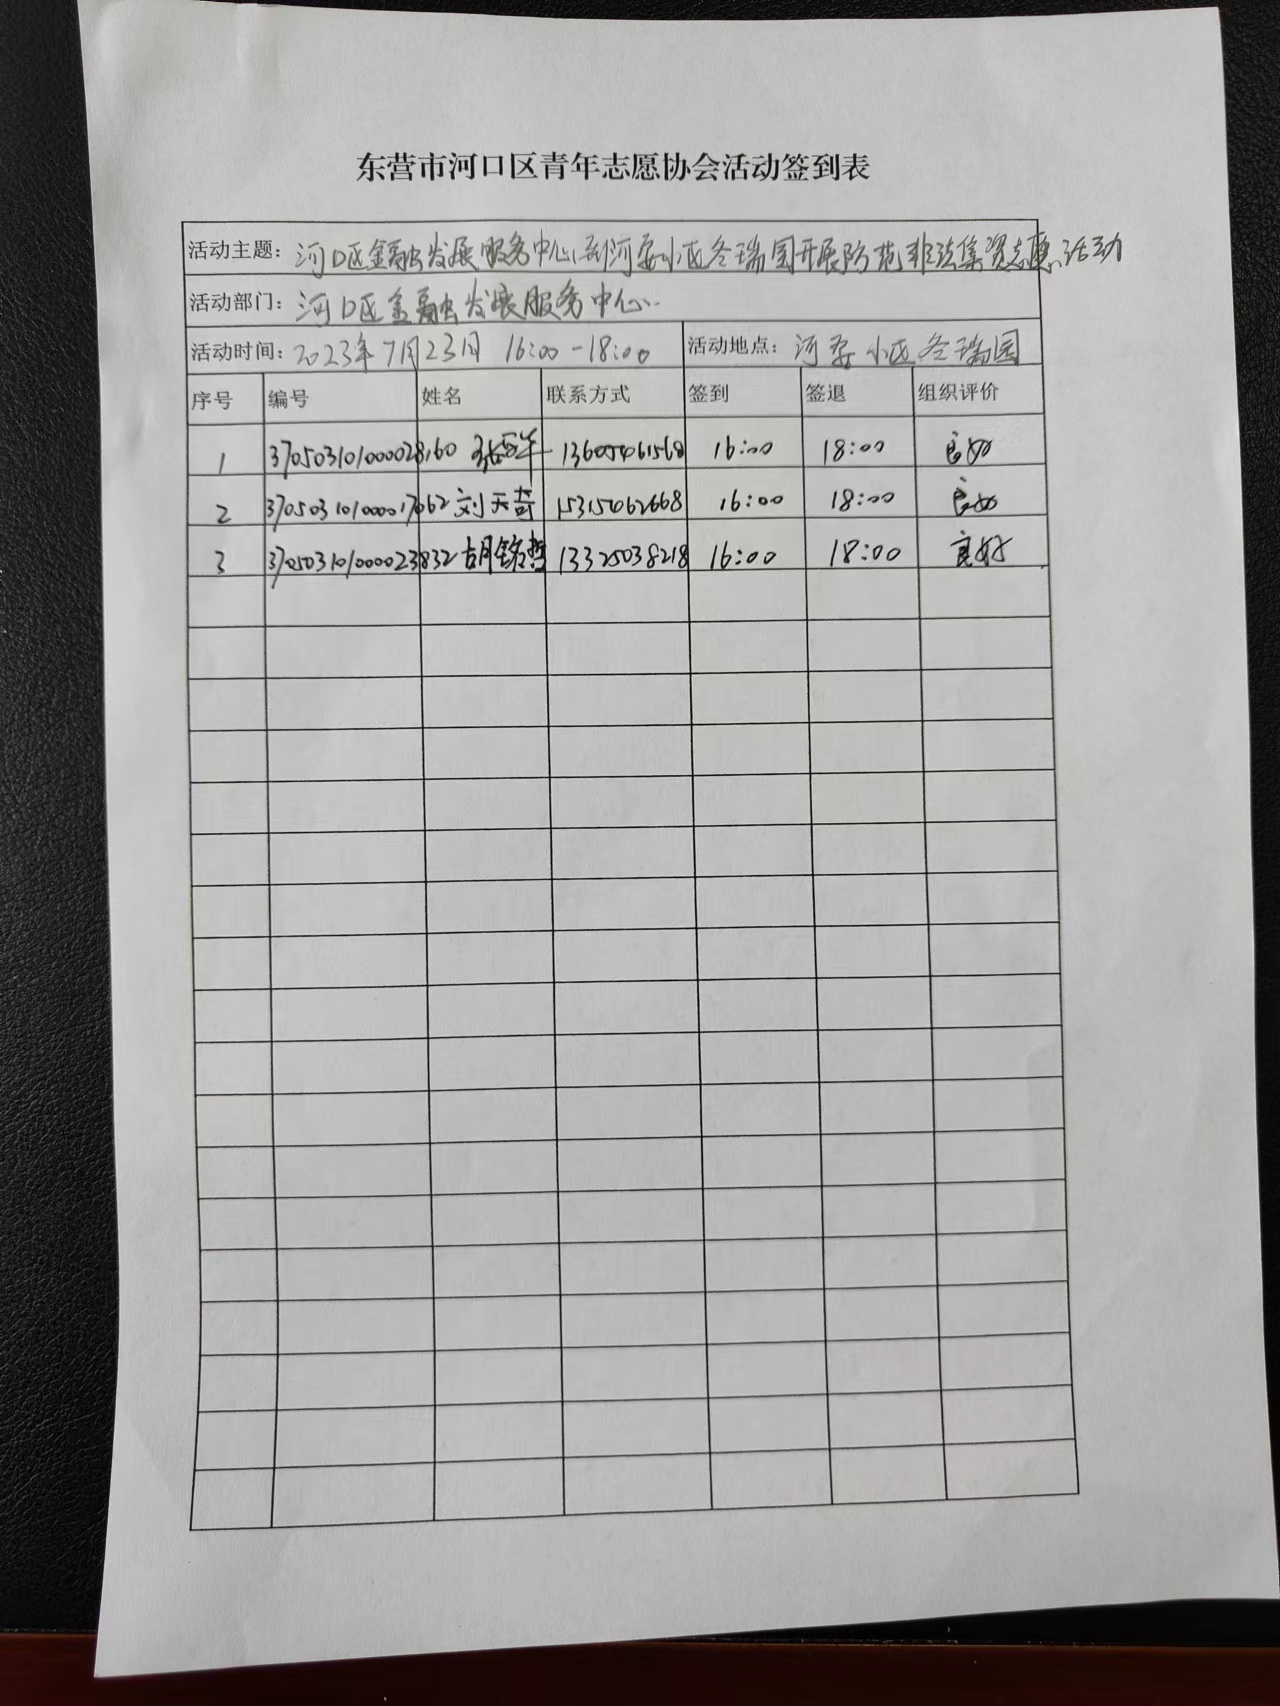 东营市河口区青年志愿协会活动签到表
活动主题: 河口区金融发展服务中心到河安小区冬瑞园开展防范非法集资志愿活动
活动部门: 河口区金融发展服务中心
活动时间: 2023年7月23日 16:00-18:00 活动地点: 河安小区冬瑞园
序号 编号 姓名 联系方式 签到 签退 组织评价
1 370503101000028160 13605461568 16:00 18:00 良好
2 370503101000017662 刘天奇 15315062668 16:00 18:00 良好
3 370503101000023832 胡锦哲 13325038218 16:00 18:00 良好